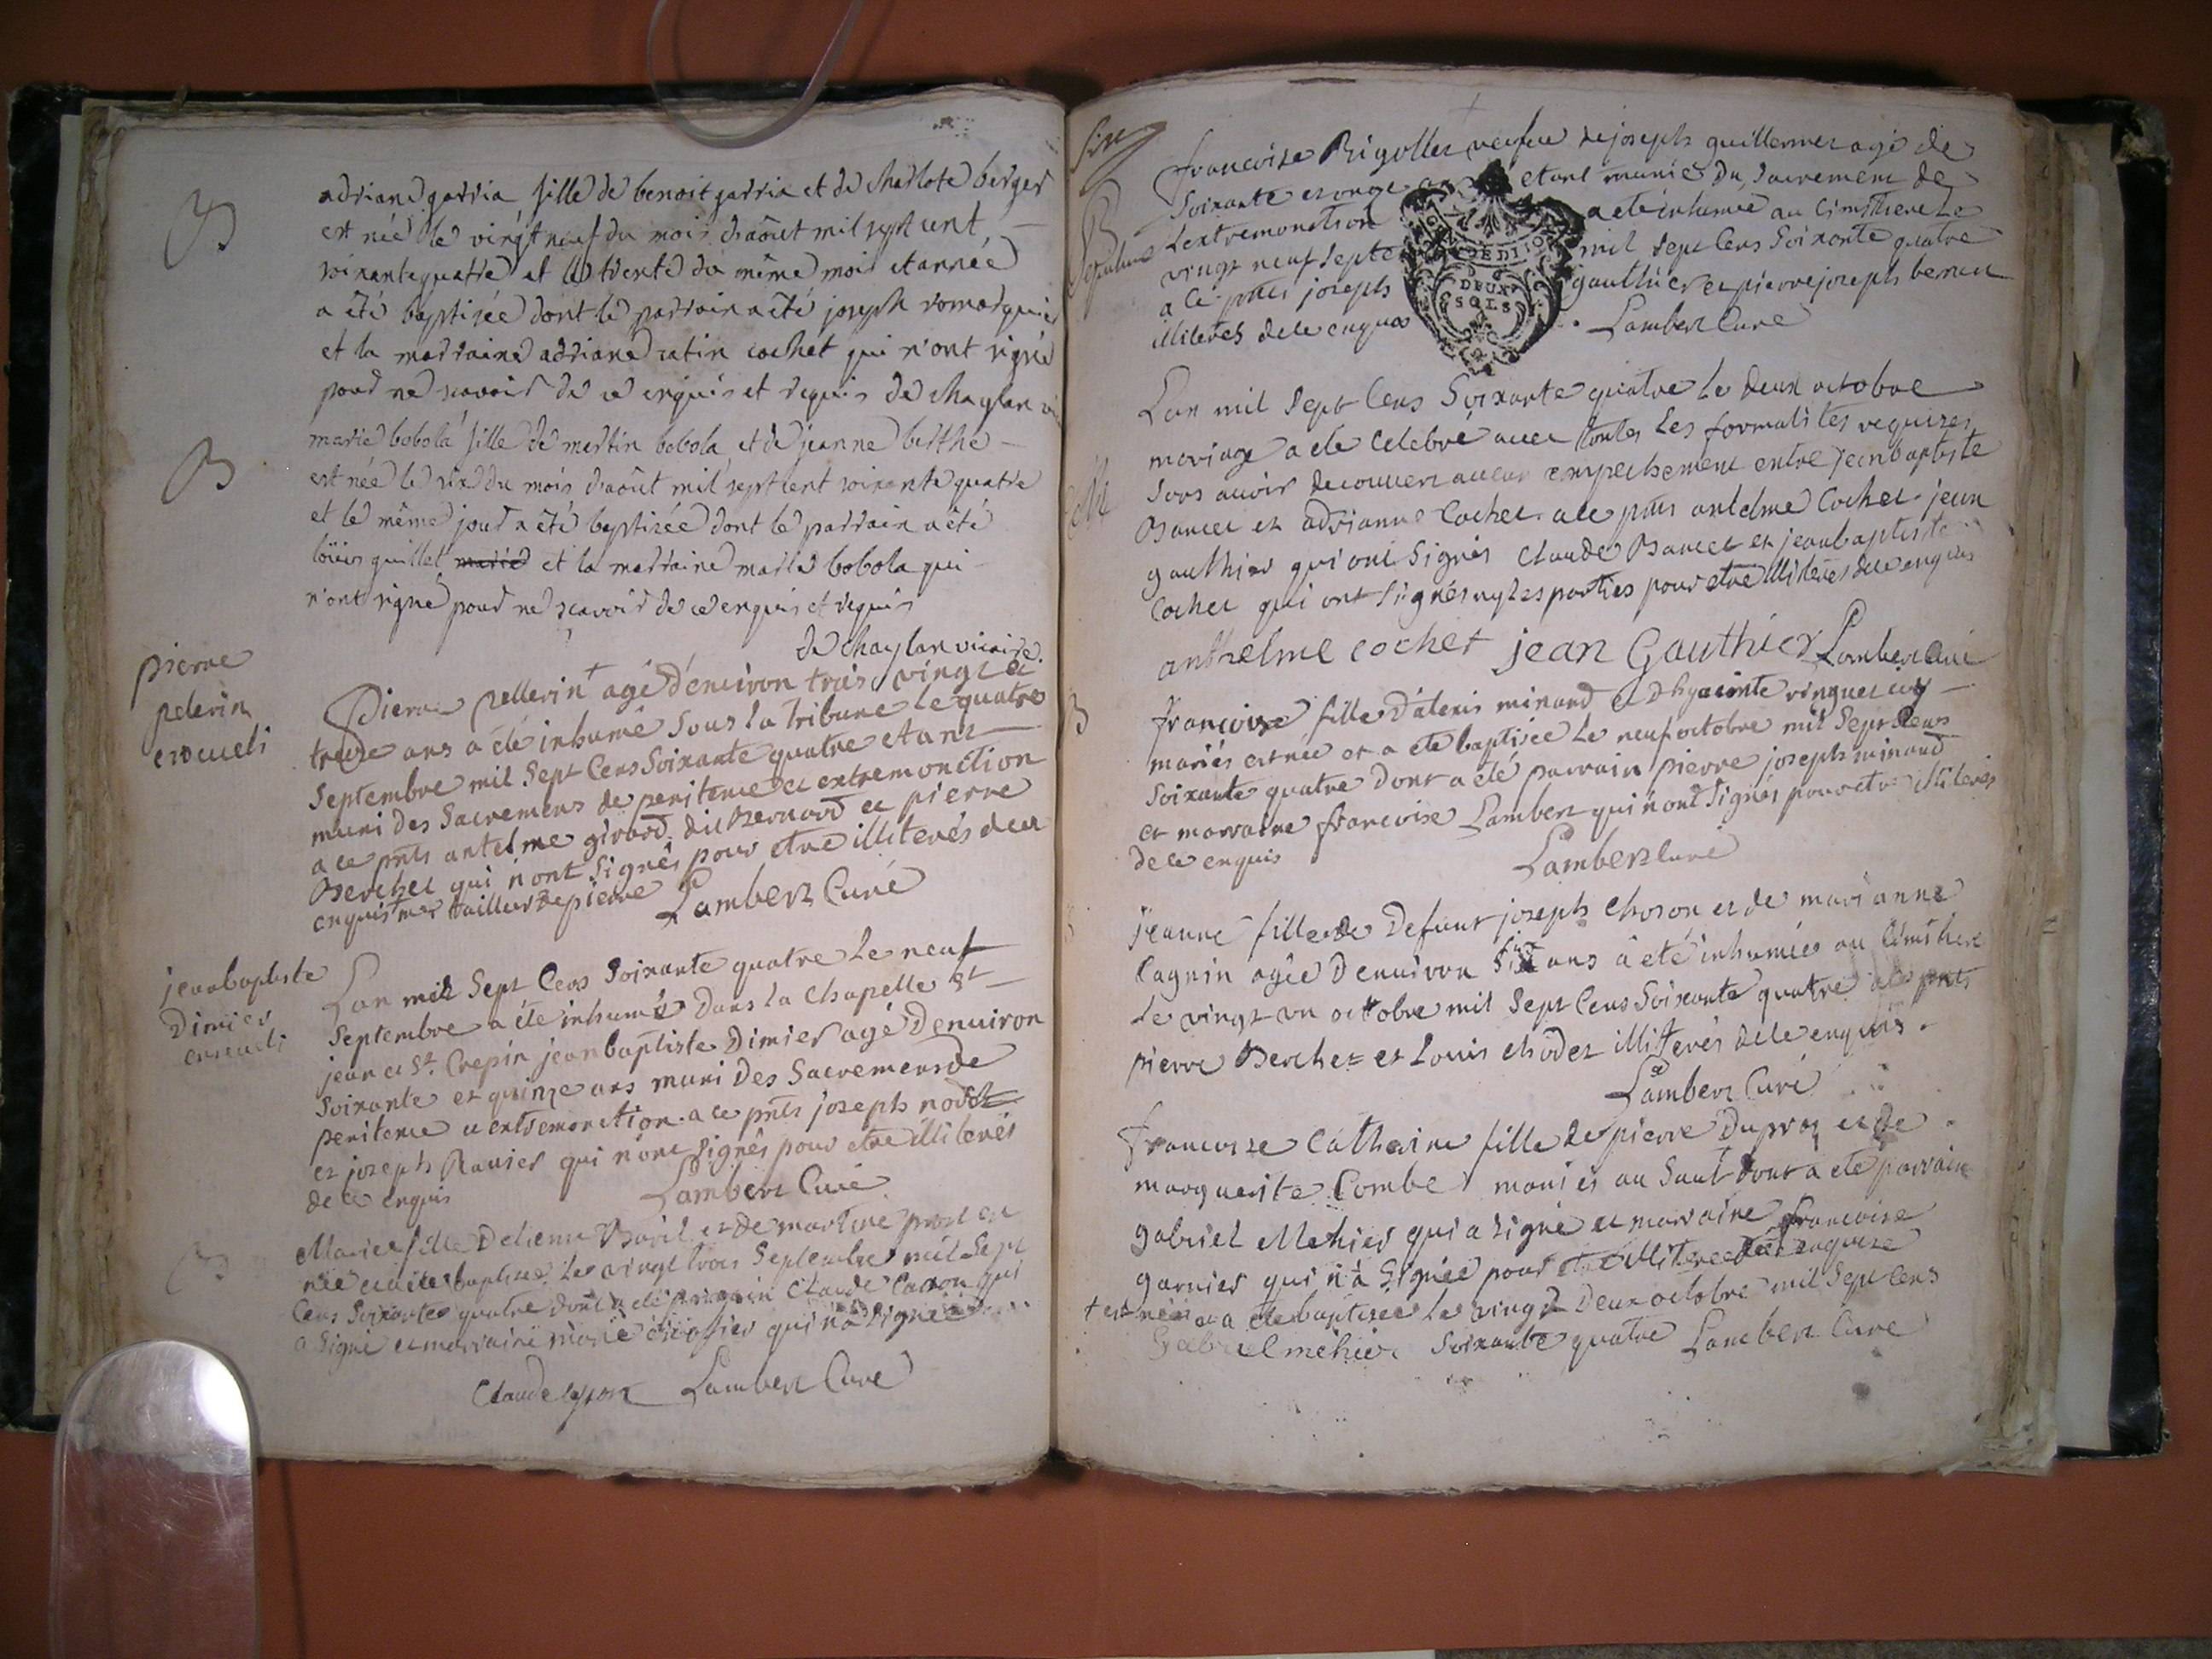 B
adriane garria fille de benoit garria et de charlote berger
est née le vingt neuf du mois daoût mil sept cent
soixante quatre et le trente du même mois et année
a été baptisée dont le parrain a été joseph romarquier
et la marraine adriane catin cochet qui n'ont signé
pour ne scavoir de ce enquis et requis de chaylan
B
marie bobola fille de martin bobola et de jeanne berthe
est née le six du mois daoût mil sept cent soixante quatre
et le même jour a été baptisée dont le parrain a été
loüis guillet marie et la marraine marie bobola qui
n'ont signé pour ne scavoir de ce enquis et requis
de chaylan vicaire.
pierre
pelerin
Pierre pellerin + agé d'environ trois vingt et
treize ans a été inhumé sous la tribune le quatre
septembre mil sept cens soixante quatre etant
muni des sacremens de penitence et extremonction
a ce pnts antelme girard dit bernard et pierre
Berchet qui n'ont signés pour etre illiterés de ce
enquis + mre tailleur de pierre Lambert Curé
jeanbaptiste
Dimier
Lan mil sept cens soixante quatre le neuf
septembre a été inhumé dans la chapelle st
jean et st. Crepin jeanbaptiste Dimier agé denviron
soixante et quinze ans muni des sacremens de
penitence et extremonction. a ce pnts joseph
et joseph Ravier qui n'ont signés pour etre illiterés
de ce enquis Lambert Curé
B
Marie fille detienne et de martine
née et a été baptisée le vingt trois septembre mil sept
cens soixante quatre dont a été parrain Claude qui
a signé et marraine marie qui n'a signée
Claude Lambert Curé
Sepulture
francoise Rigollet veufve de joseph guillermet agé de
soixante et onze etant munie du sacrement de
Lextremonction a eté inhumée au Cimitiere le
vingt neuf septe mil sept cens soixante quatre
a ce pnts joseph gauthier et pierre joseph
illiterés de ce enquis Lambert Curé
DEUX
SOLS
Lan mil sept cens soixante quatre le deux octobre
mariage a ete celebré avec toutes les formalités requizes
sans avoir decouvert aucun empechement entre jeanbaptiste
Bancet et adrianne Cochet. a ce pnts antelme Cochet. jean
gauthier qui ont signés Claude Bancet et jeanbaptiste
Cochet qui ont signés les parties pour etre illiterés de ce enquis
anthelme cochet jean Gauthier Lambert Curé
B
francoise fille d'alexis minand et d'hyacinte
mariés est née et a eté baptisée le neuf octobre mil sept cens
soixante quatre dont a eté parrain pierre joseph minand
et marraine francoise Lambert qui n'ont signés pour etre illiterés
de ce enquis Lambert Curé
jeanne fille de defunt joseph choson et de marianne
Cagnin agée denviron six ans a été inhumée au Cimitiere
le vingt un octobre mil sept cens soixante quatre a ce pnts
pierre Berchet et Louis chodet illiterés de ce enquis.
Lambert Curé
francoise Catherine fille de pierre Dupraz et de
marguerite Combe mariés au Saut dont a eté parrain
gabriel Mehier qui a signé et marraine francoise
garnier qui n'a signée pour etre illiterée de ce enquise
+ est née et a été baptisée le vingt deux octobre mil sept cens
Gabriel mehier soixante quatre Lambert Curé